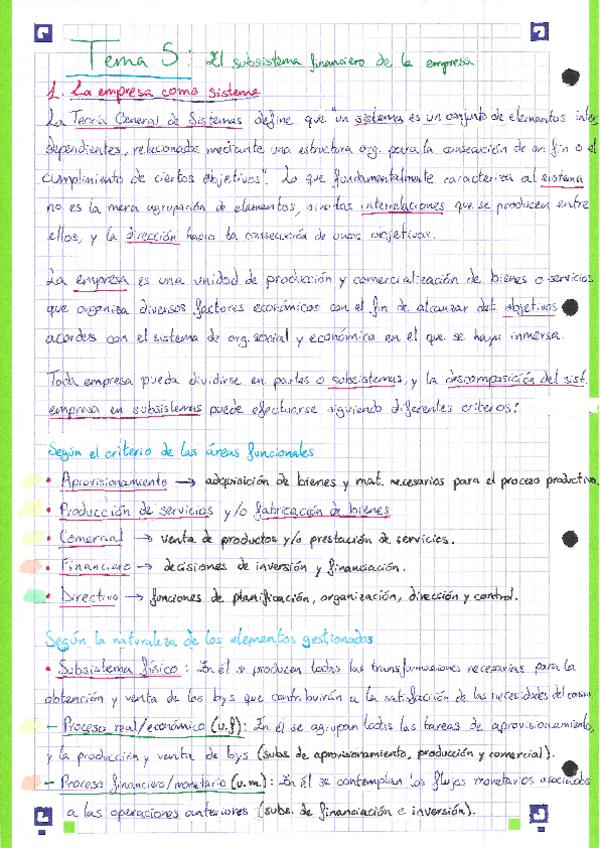 Tema 5: El subsistema financiero de la empresa
1. La empresa como sistema
La Teoría General de Sistemas define que "un sistema es un conjunto de elementos inter
dependientes, relacionados mediante una estructura org. para la consecución de un fin o el
cumplimiento de ciertos objetivos". Lo que fundamentalmente caracteriza al sistema
no es la mera agrupación de elementos, sino las interrelaciones que se producen entre
ellos, y la dirección hacia la consecución de unos objetivos.
La empresa es una unidad de producción y comercialización de bienes o servicios
que organiza diversos factores económicos con el fin de alcanzar det. objetivos
acordes con el sistema de org. social y económica en el que se haya inmersa.
Toda empresa puede dividirse en partes o subsistemas, y la descomposición del sist.
empresa en subsistemas puede efectuarse siguiendo diferentes criterios:
Según el criterio de las áreas funcionales
• Aprovisionamiento → adquisición de bienes y mat. necesarios para el proceso productivo.
• Producción de servicios y/o fabricación de bienes
• Comercial → venta de productos y/o prestación de servicios.
• Financiero → decisiones de inversión y financiación.
• Directivo → funciones de planificación, organización, dirección y control.
Según la naturaleza de los elementos gestionados
• Subsistema físico: En él se producen todas las transformaciones necesarias para la
obtención y venta de los bys que contribuirán a la satisfacción de las necesidades del consum.
– Proceso real/económico (u.f): En él se agrupan todas las tareas de aprovisionamiento,
y la producción y venta de bys (subs. de aprovisionamiento, producción y comercial).
– Proceso financiero/monetario (u.m.): En él se contemplan los flujos monetarios asociados
a las operaciones anteriores (subs. de financiación e inversión).